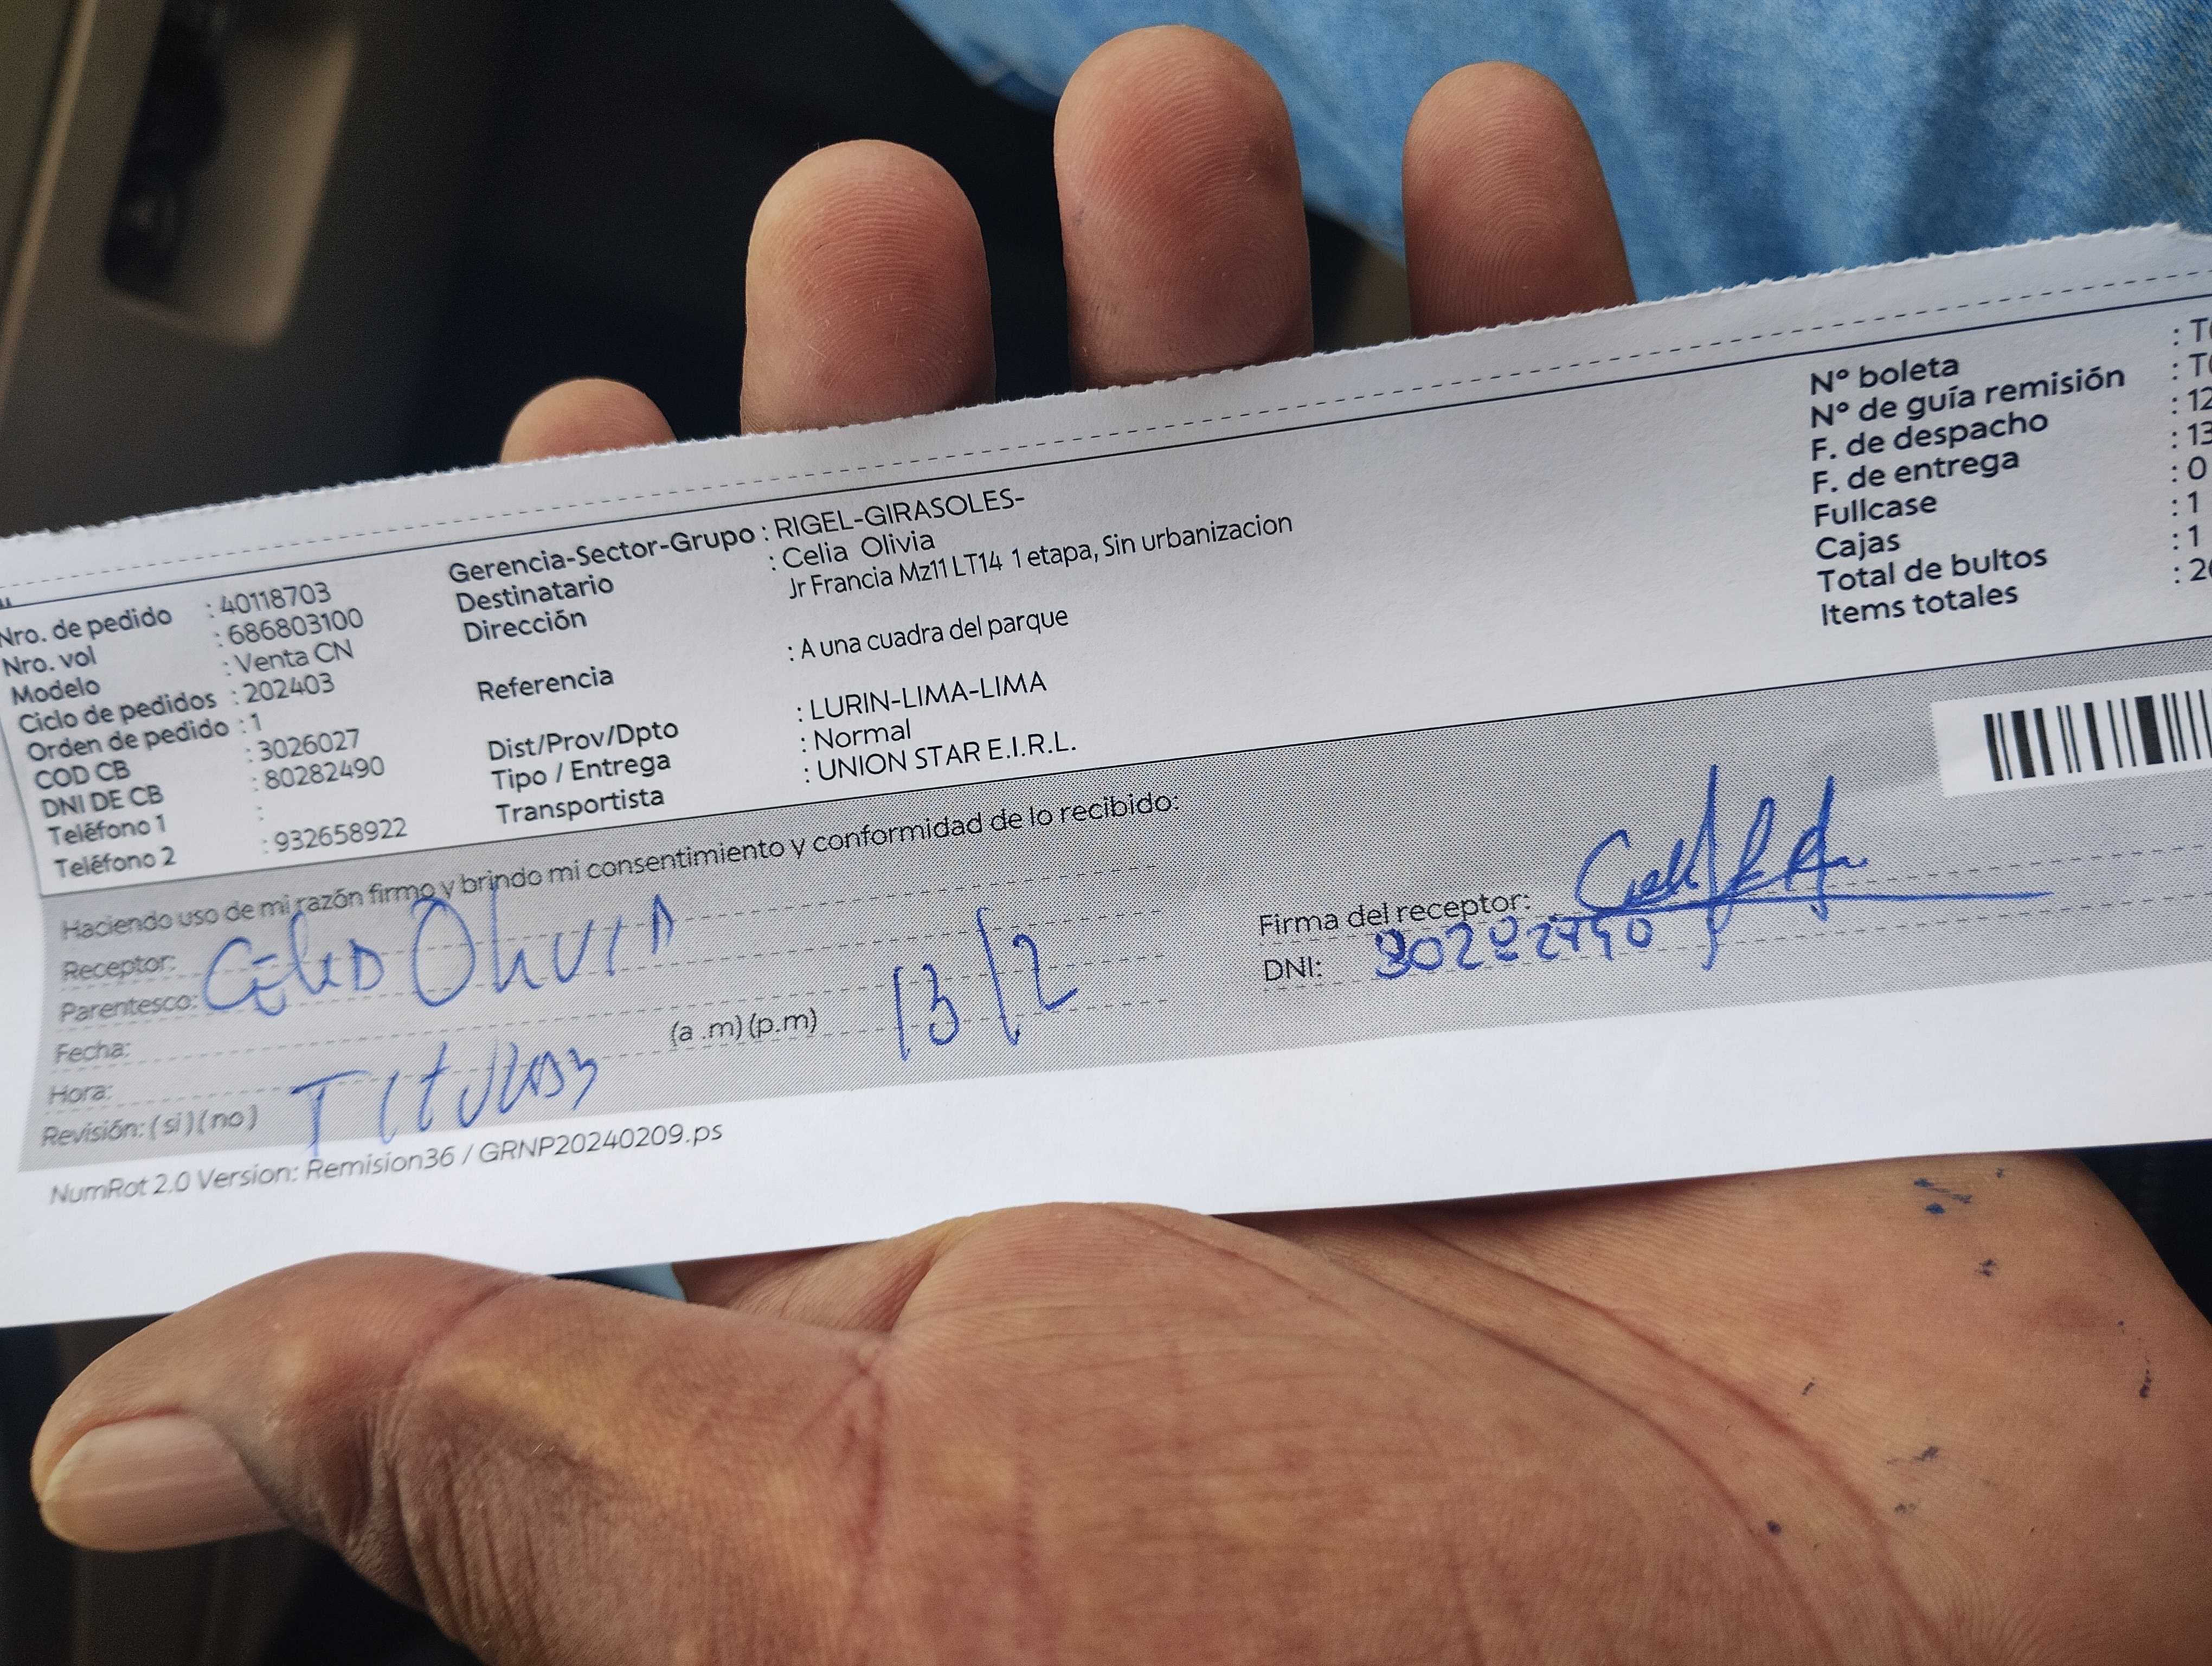 Nro. de pedido : 40118703
Nro. vol : 686803100
Modelo : Venta CN
Ciclo de pedidos : 202403
Orden de pedido : 1
COD CB : 3026027
DNI DE CB : 80282490
Teléfono 1 :
Teléfono 2 : 932658922
Gerencia-Sector-Grupo : RIGEL-GIRASOLES-
Destinatario : Celia Olivia
Dirección Jr Francia Mz11 LT14 1 etapa, Sin urbanizacion
Referencia : A una cuadra del parque
Dist/Prov/Dpto : LURIN-LIMA-LIMA
Tipo / Entrega : Normal
Transportista : UNION STAR E.I.R.L.
N° boleta : T
N° de guía remisión : T
F. de despacho : 12
F. de entrega : 13
Fullcase : 0
Cajas : 1
Total de bultos : 1
Items totales : 2
Haciendo uso de mi razón firmo y brindo mi consentimiento y conformidad de lo recibido:
Receptor: Celia Olivia
Parentesco:
Fecha: 13/2
Hora: (a .m) (p.m)
Revisión: ( si ) ( no )
Firma del receptor:
DNI: 80282490
NumRot 2.0 Version: Remision36 / GRNP20240209.ps